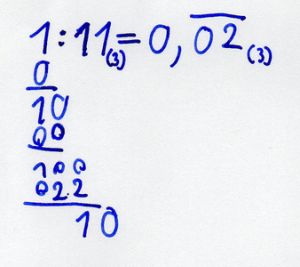 1:11(3)=0,0̅2̅(3)
0
10
00
100
022
10